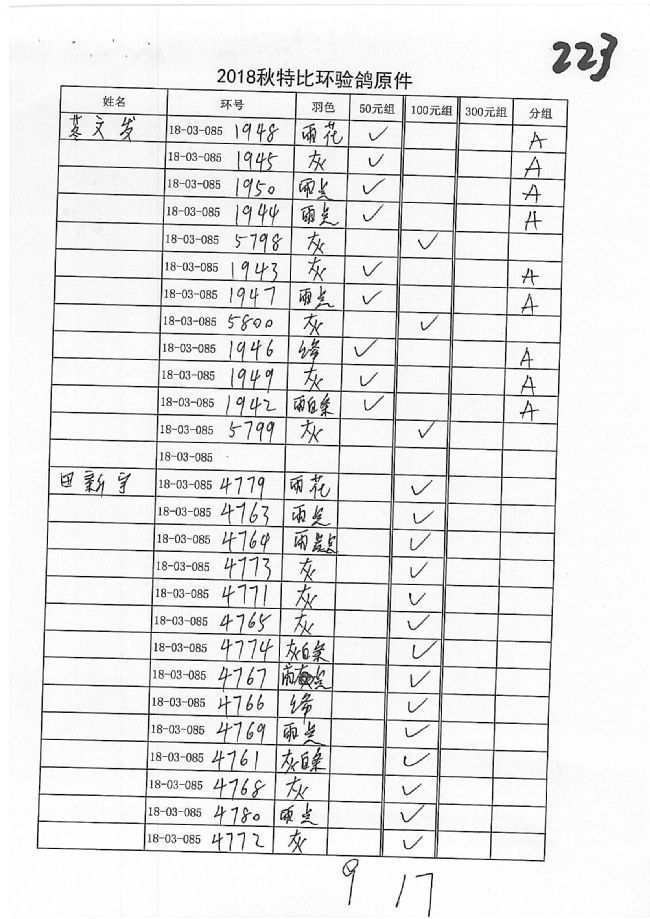 223
2018秋特比环验鸽原件
姓名 环号 羽色 50元组 100元组 300元组 分组
文发 18-03-085 1948 雨花 ✓ A
18-03-085 1945 灰 ✓ A
18-03-085 1950 雨点 ✓ A
18-03-085 1944 雨点 ✓ A
18-03-085 5798 灰 ✓
18-03-085 1943 灰 ✓ A
18-03-085 1947 雨点 ✓ A
18-03-085 5800 灰 ✓
18-03-085 1946 绛 ✓ A
18-03-085 1949 灰 ✓ A
18-03-085 1942 雨白条 ✓ A
18-03-085 5799 灰 ✓
18-03-085
田新宇 18-03-085 4779 雨花 ✓
18-03-085 4763 雨点 ✓
18-03-085 4764 雨点 ✓
18-03-085 4773 灰 ✓
18-03-085 4771 灰 ✓
18-03-085 4765 灰 ✓
18-03-085 4774 灰白条 ✓
18-03-085 4767 点 ✓
18-03-085 4766 绛 ✓
18-03-085 4769 雨点 ✓
18-03-085 4761 灰白条 ✓
18-03-085 4768 灰 ✓
18-03-085 4780 雨点 ✓
18-03-085 4772 灰 ✓
9 17